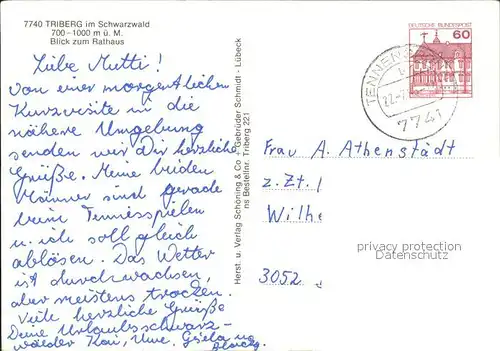 7740 TRIBERG im Schwarzwald
700-1000 m ü. M.
Blick zum Rathaus
Liebe Mutti!
Von einer morgentlichen
Kurzvisite in die
nähere Umgebung
senden wir Dir herzliche
Grüße. Meine beiden
Männer sind gerade
beim Tennisspielen
u. ich soll gleich
ablösen. Das Wetter
ist durchwachsen,
aber meistens trocken.
Viele herzliche Grüße
Deine Urlaubsschwarz-
wälder Kai, Uwe, Gisela u.
Herst. u. Verlag Schöning & Co + Gebrüder Schmidt · Lübeck
ns Bestellnr. Triberg 221
DEUTSCHE BUNDESPOST
60
TENNEN
22.-7
7741
Frau A. Athenstädt
z. Zt.
Wilhe
3052
privacy protection
Datenschutz